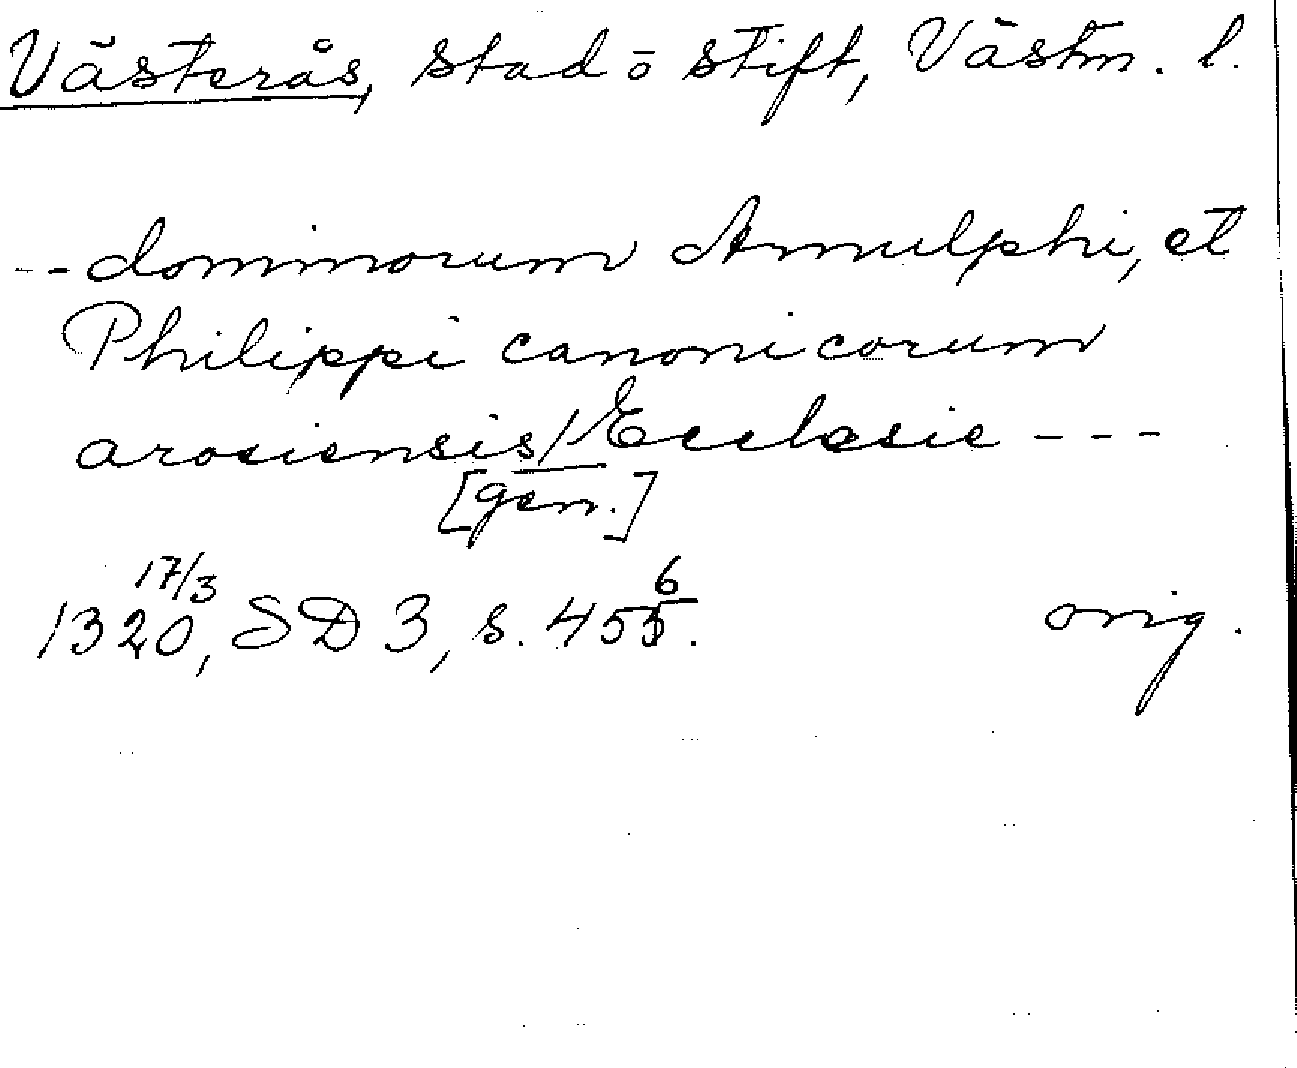 Västerås, stad ō stift, Västm. l.
-- dominorum Arnulphi, et
Philippi canonicorum
arosiensis/Ecclesie ---
[gen.]
17/3 6
1320, SD 3, s. 455. orig.